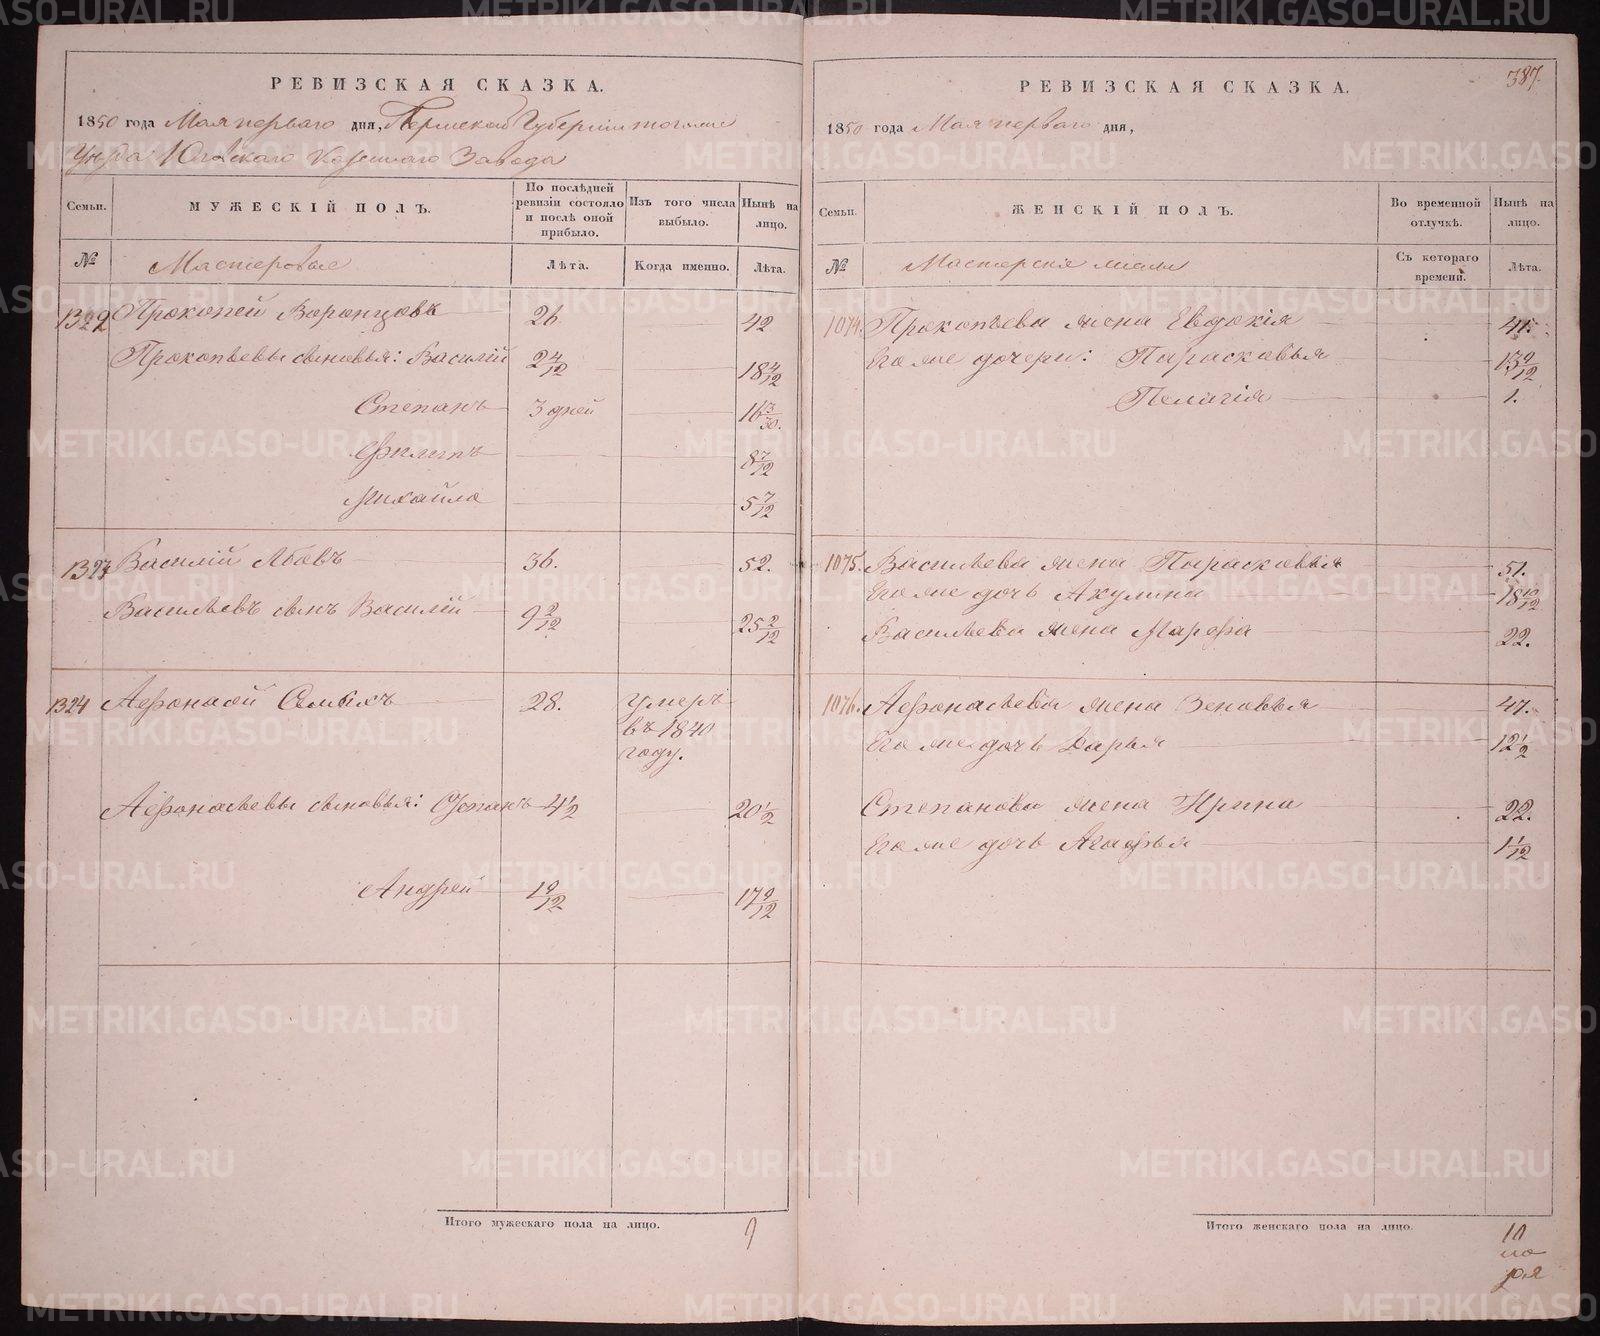 РЕВИЗСКАЯ СКАЗКА.
1850 года Мая перваго дня, Пермской Губернии тогоже
Уезда Юговскаго Казеннаго Завода
Семьи.
МУЖЕСКІЙ ПОЛЪ.
По послѣдней ревизіи состояло и послѣ оной прибыло.
Изъ того числа выбыло.
Нынѣ на лицо.
№
Мастеровые
Лѣта.
Когда именно.
Лѣта.
1322 Прокопей Воронцовъ 26 42
Прокопьевы сыновья: Василій 2 4/12 18 4/12
Степанъ 3 дней 16 3/30.
Филипъ 8 7/12
Михайло 5 7/12
1323 Василій Лбовъ 36. 52.
Васильевъ сынъ Василій 9 2/12 25 2/12
1324 Афонасей Семыхъ 28. умеръ въ 1840 году.
Афонасьевы сыновья: Степанъ 4 1/2 20 1/2
Андрей 1 9/12 17 9/12
Итого мужескаго пола на лицо. 9
387.
РЕВИЗСКАЯ СКАЗКА.
1850 года Мая перваго дня,
Семьи.
ЖЕНСКІЙ ПОЛЪ.
Во временной отлучкѣ.
Нынѣ на лицо.
№
Мастерскія жены
Съ котораго времени.
Лѣта.
1074. Прокопьева жена Евдокія 41.
Его же дочери: Парасковья 13 9/12
Пелагія 1.
1075. Васильева жена Парасковья 51.
Его же дочь Акулина 18 10/12
Васильева жена Марфа 22.
1076. Афонасьева жена Зеновья 47.
Его же дочь Дарья 12 1/2
Степанова жена Ирина 22.
Его же дочь Агафья 1 1/12
Итого женскаго пола на лицо. 10
METRIKI.GASO-URAL.RU